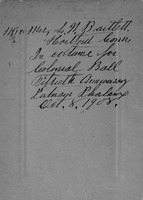 Mr & Mrs, L. N. Bartlett,
Hartford Conn
In costume for
Colonial Ball
Fiftieth Anniversary
Putnam Phalanx
Oct. 8, 1908.